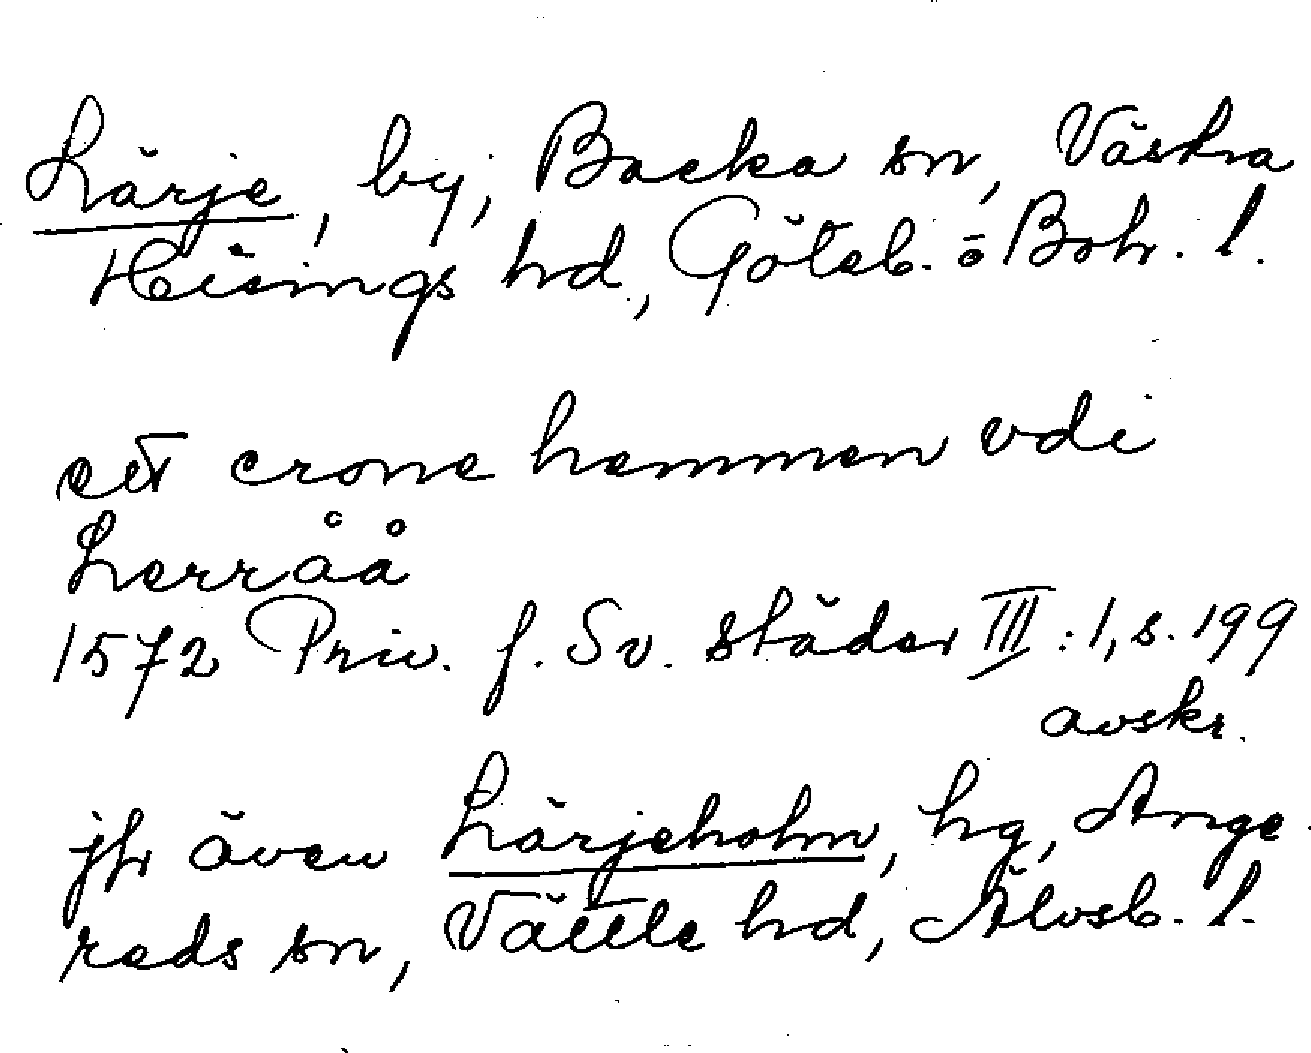 Lärje, by, Backa sn, Västra
Hisings hd, Göteb. o Boh. l.
ett crone hemmen vdi
Lerråå
1572 Priv. f. Sv. städer III:1, s. 199
avskr.
jfr även Lärjeholm, hg, Ange
reds sn, Vättle hd, Älvsb. l.